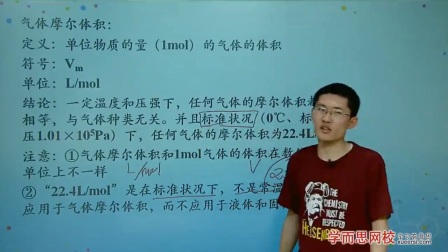 气体摩尔体积:
定义:单位物质的量(1mol)的气体的体积
符号:Vm
单位:L/mol
结论:一定温度和压强下,任何气体的摩尔体积
相等,与气体种类无关。并且标准状况(0℃、标
压1.01×10⁵Pa)下,任何气体的摩尔体积为22.4L
注意:①气体摩尔体积和1mol气体的体积在数
单位上不一样 L/mol
②“22.4L/mol”是在标准状况下,不是常温
应用于气体摩尔体积,而不应用于液体和固
THE
CHEMISTRY
MUST BE
RESPECTED
HEISENBERG
学而思网校